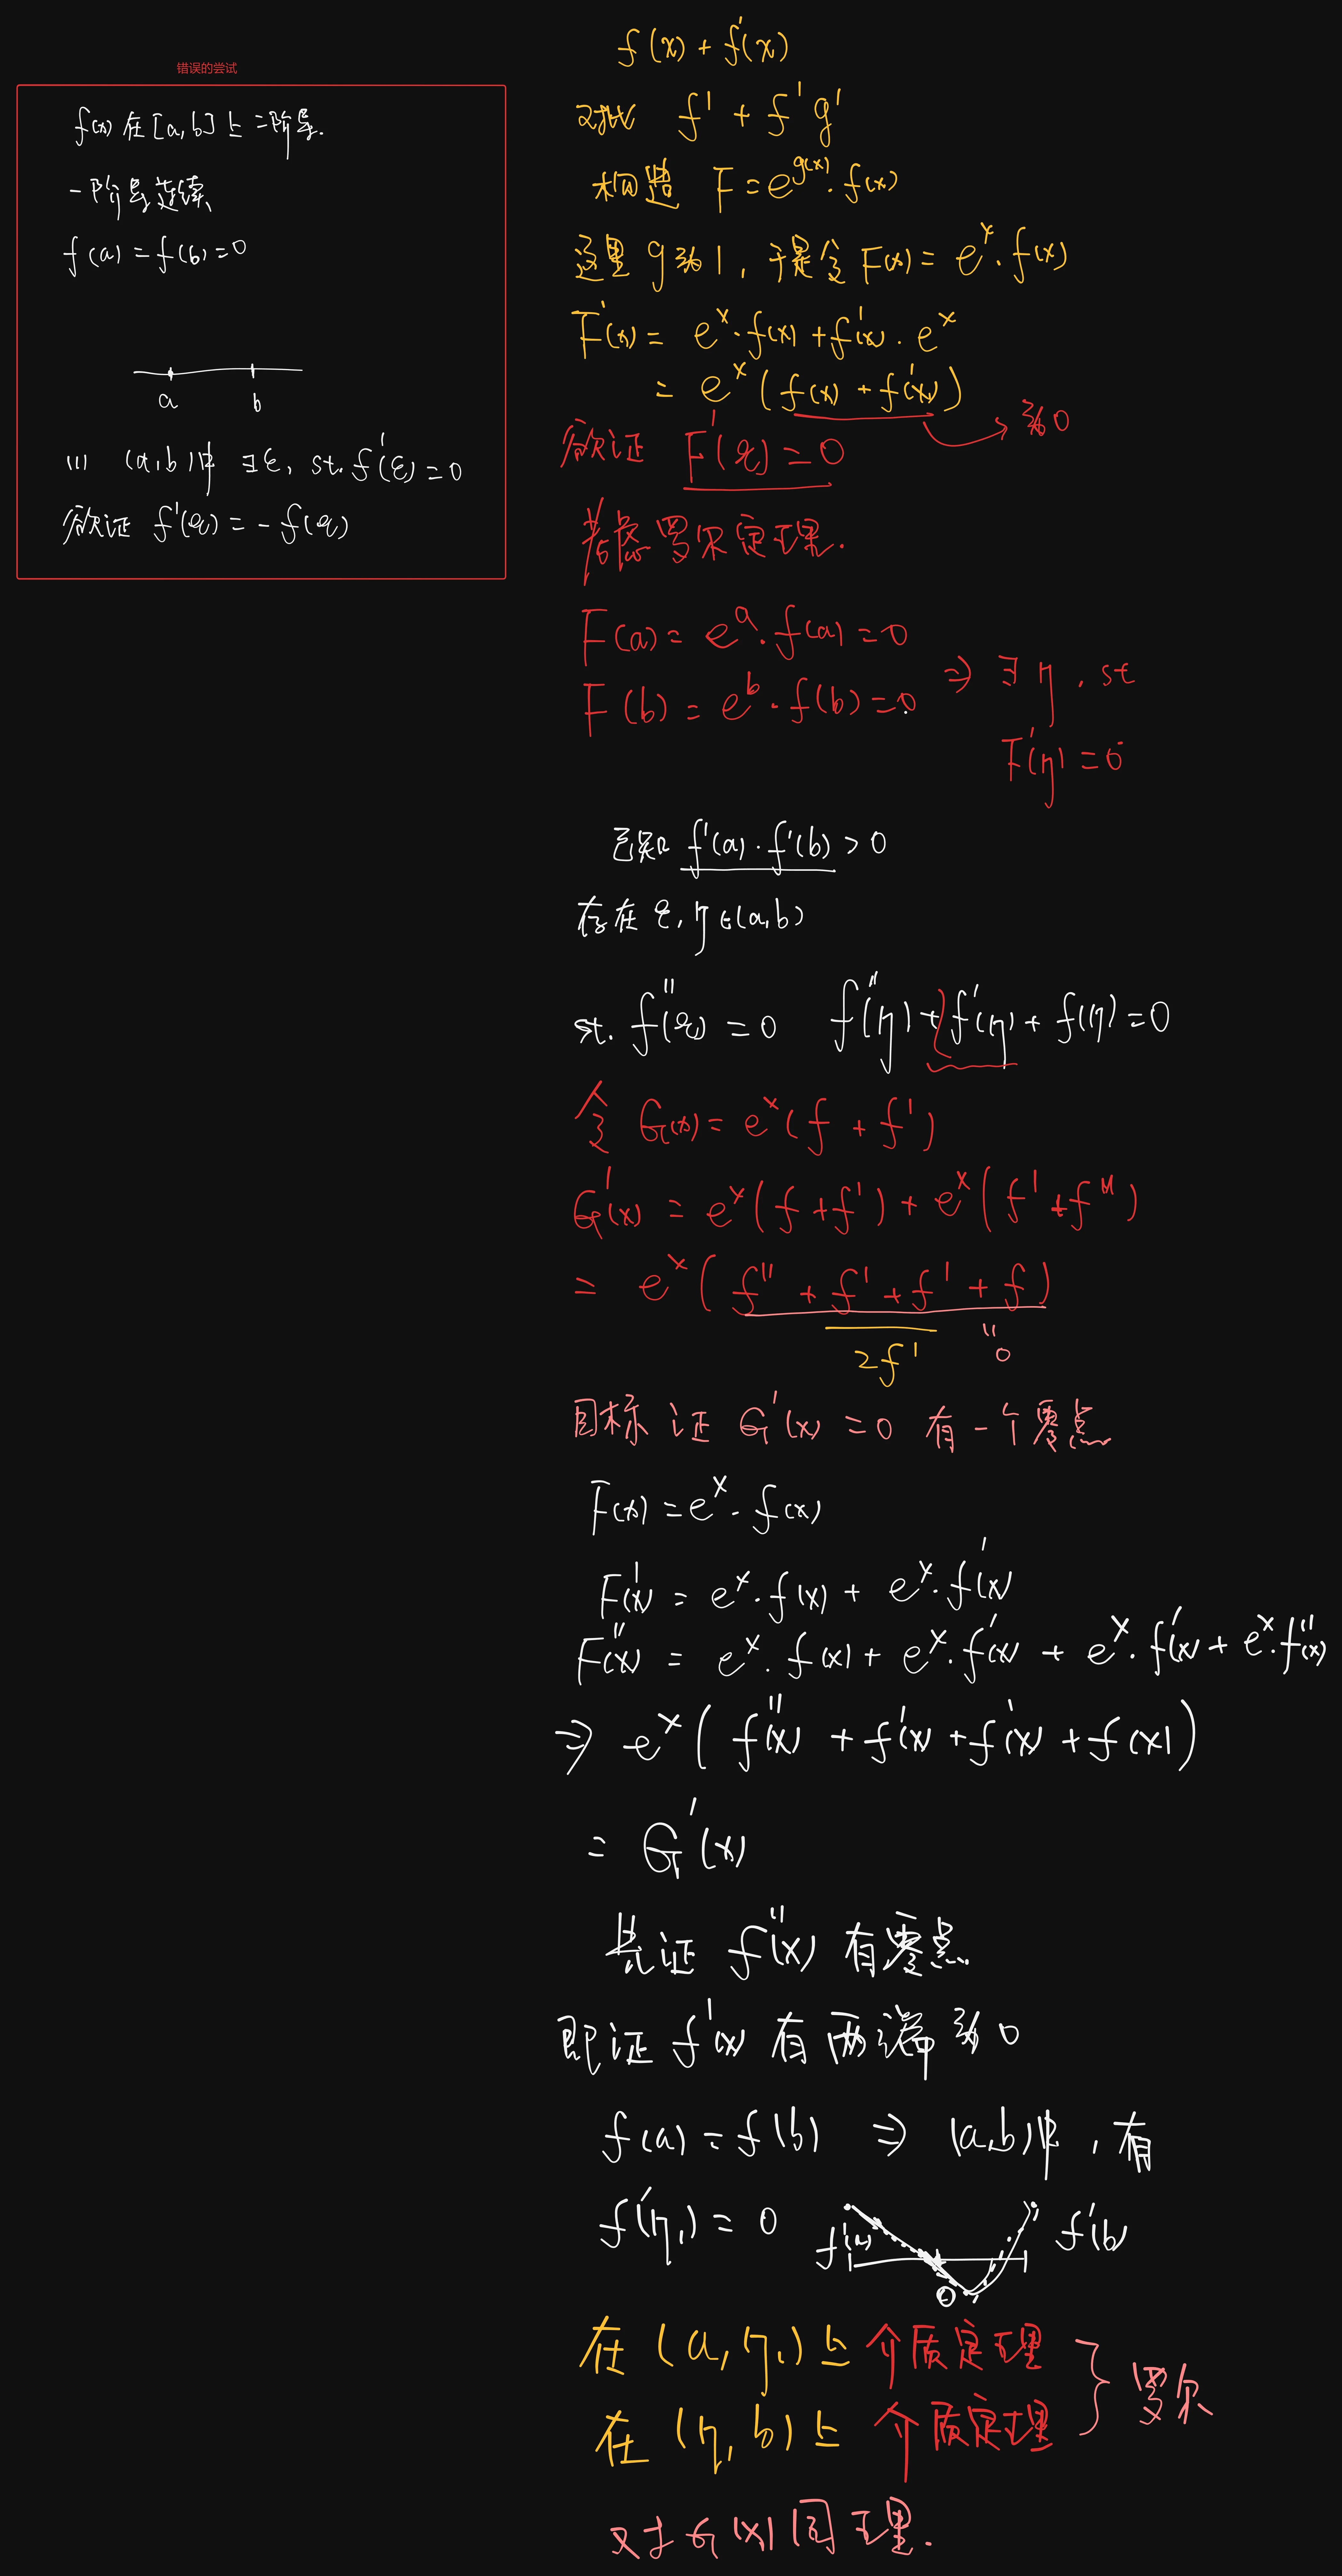 错误的尝试
f(x) 在 [a,b] 上 二阶导.
一阶导连续
f(a) = f(b) = 0
a b
(1) (a,b)中 ∃ξ, st. f'(ξ) = 0
欲证 f'(ξ) = -f(ξ)
f(x) + f'(x)
对比 f' + f'g'
构造 F = e^{g(x)}·f(x)
这里 g 为 1, 于是令 F(x) = e^x·f(x)
F'(x) = e^x·f(x) + f'(x)·e^x
= e^x(f(x) + f'(x)) 为0
欲证 F'(ξ) = 0
考虑罗尔定理.
F(a) = e^a·f(a) = 0
F(b) = e^b·f(b) = 0 ⇒ ∃η, st
F'(η) = 0
已知 f'(a)·f'(b) > 0
存在 ξ, η ∈ (a,b)
st. f''(ξ) = 0 f''(η) + f'(η) + f(η) = 0
令 G(x) = e^x(f + f')
G'(x) = e^x(f + f') + e^x(f' + f'')
= e^x(f'' + f' + f' + f)
2f' 0
目标证 G'(x) = 0 有一个零点
F(x) = e^x·f(x)
F'(x) = e^x·f(x) + e^x·f'(x)
F''(x) = e^x·f(x) + e^x·f'(x) + e^x·f'(x) + e^x·f''(x)
⇒ e^x(f''(x) + f'(x) + f'(x) + f(x))
= G'(x)
先证 f''(x) 有零点
即证 f'(x) 有两端为0
f(a) = f(b) ⇒ (a,b)中, 有
f'(η₁) = 0 f'(a) 0 f'(b)
在 (a, η₁) 上 介质定理
在 (η, b) 上 介质定理 } 罗尔
对于 G(x) 同理.